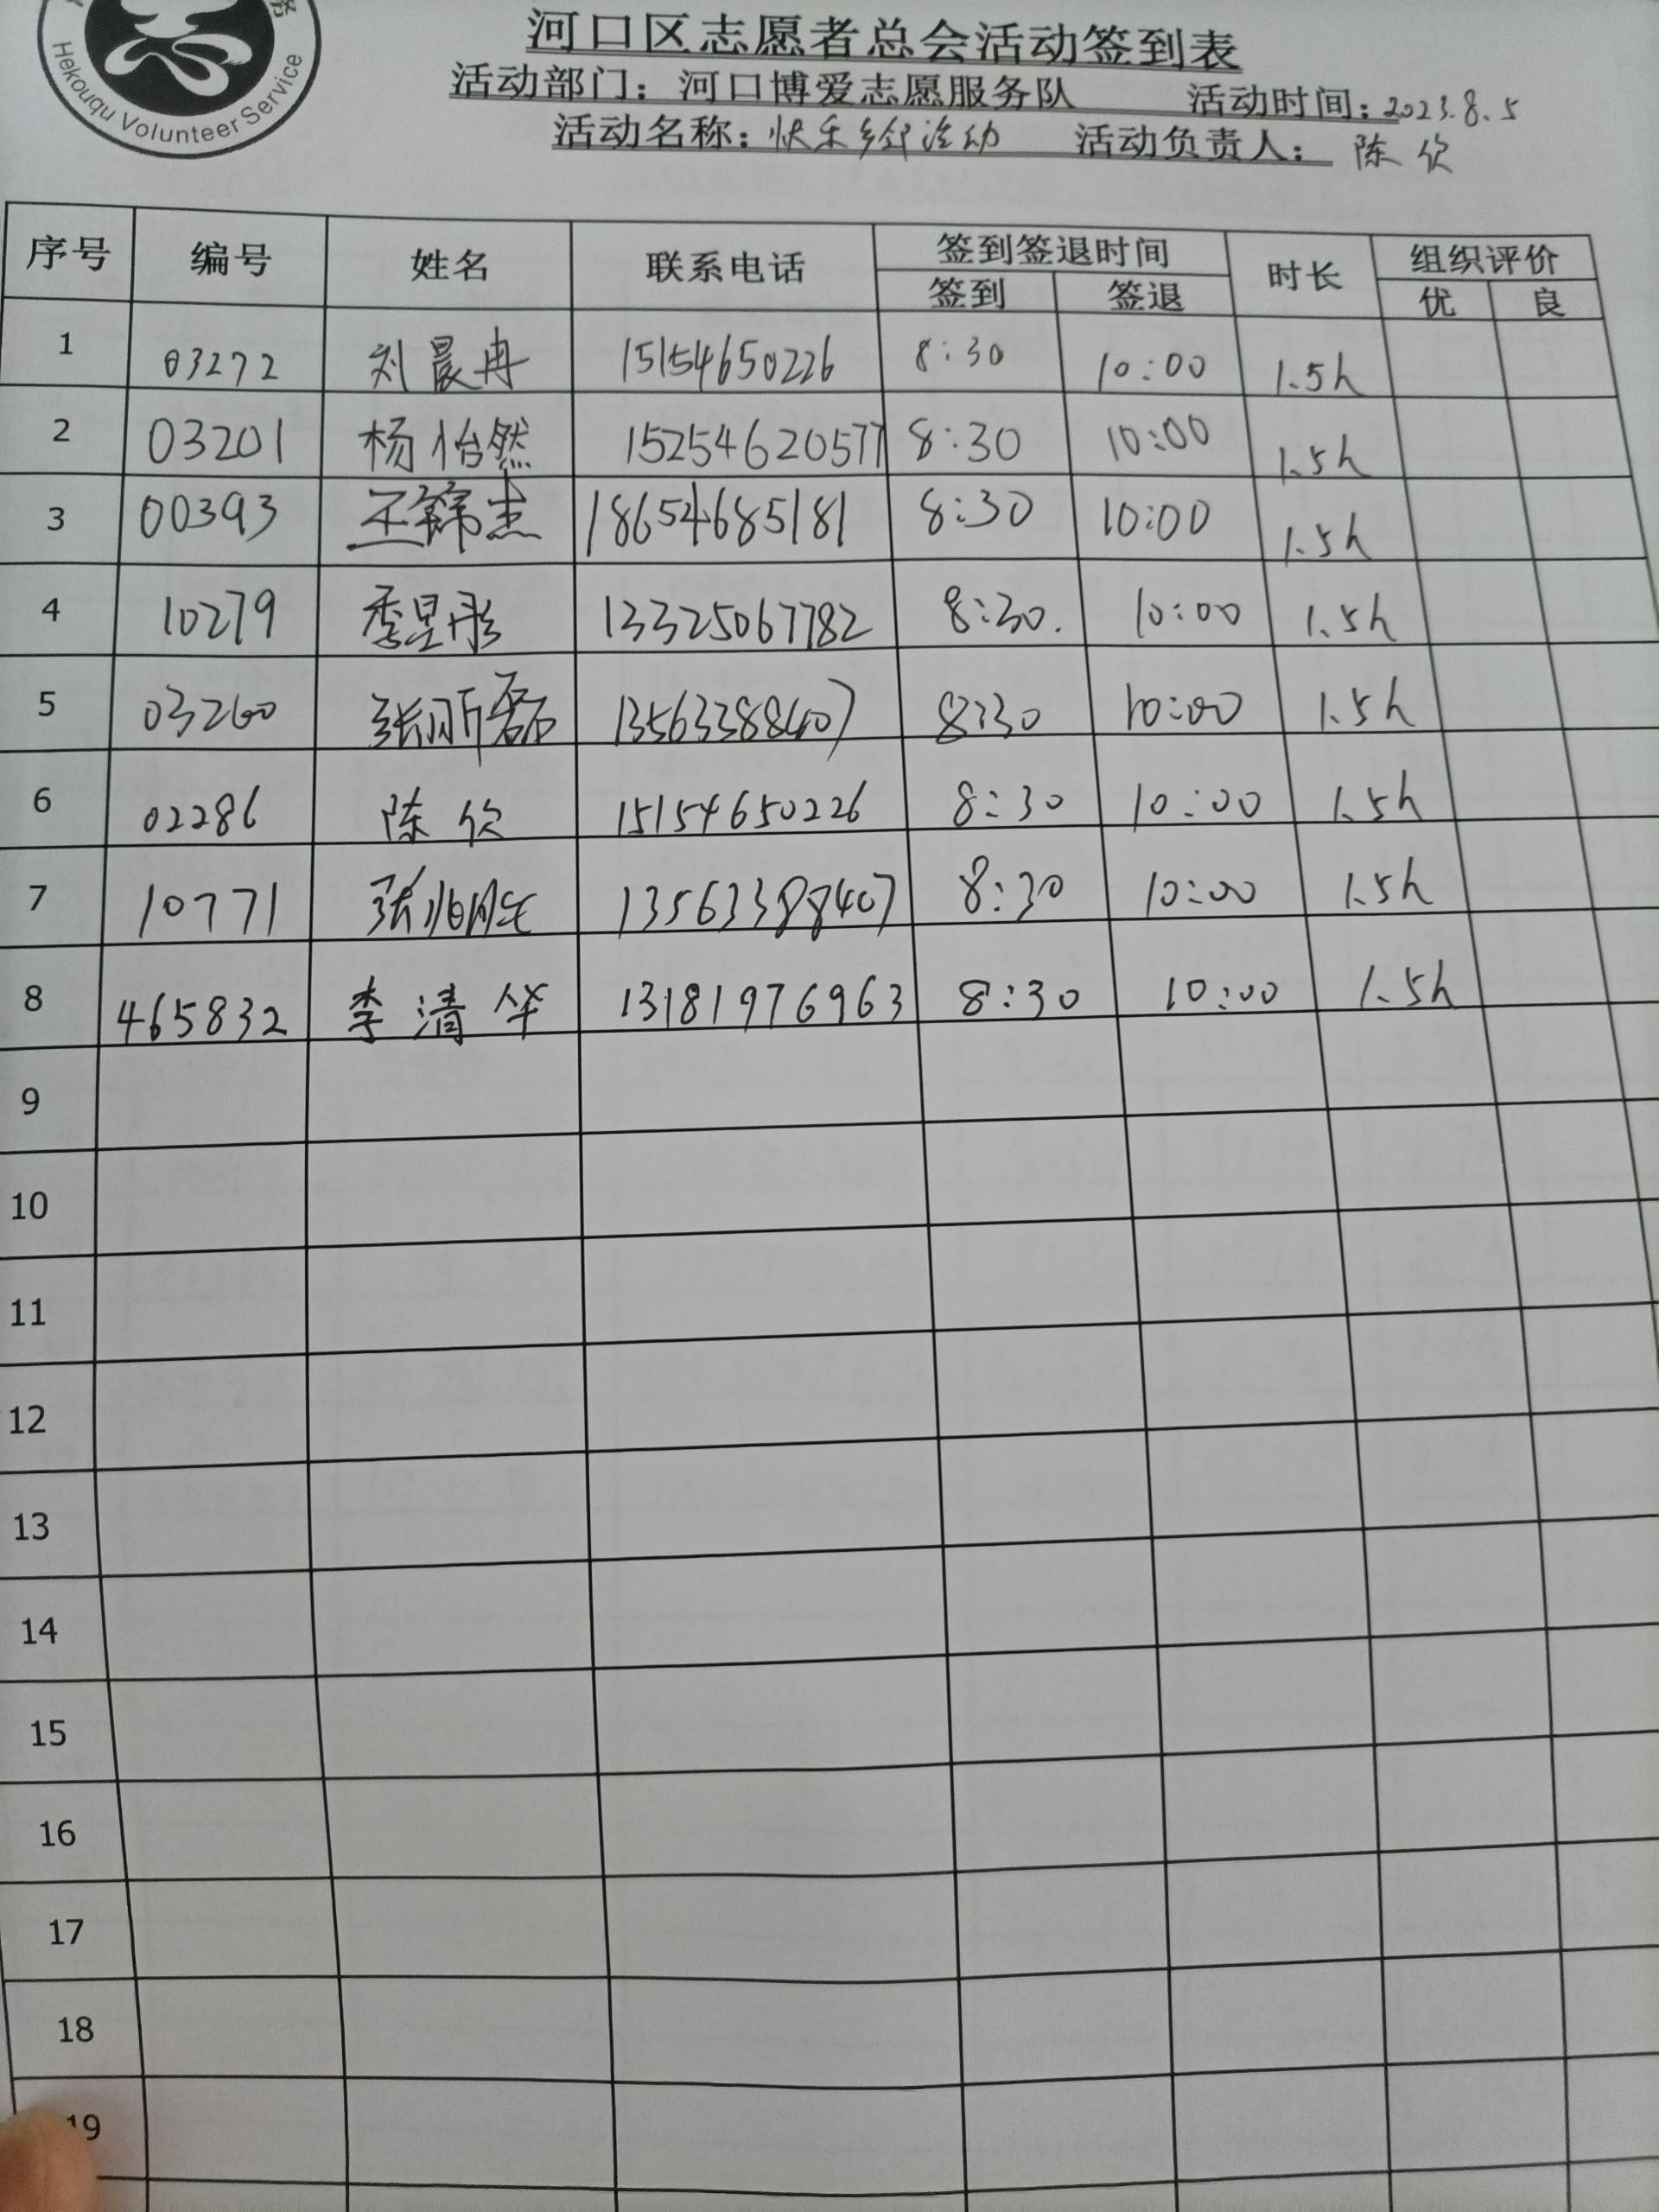 务
Hekouqu Volunteer Service
河口区志愿者总会活动签到表
活动部门：河口博爱志愿服务队 活动时间：2023.8.5
活动名称：快乐乡邻活动 活动负责人：陈欣
序号 编号 姓名 联系电话 签到签退时间 时长 组织评价
签到 签退 优 良
1 03272 刘晨冉 15154650226 8:30 10:00 1.5h
2 03201 杨怡然 15254620577 8:30 10:00 1.5h
3 00393 王锦杰 18654685181 8:30 10:00 1.5h
4 10279 季星彤 13325067782 8:30. 10:00 1.5h
5 03260 张 13563388407 8:30 10:00 1.5h
6 02286 陈欣 15154650226 8:30 10:00 1.5h
7 10771 张 13563388407 8:30 10:00 1.5h
8 465832 李清华 13181976963 8:30 10:00 1.5h
9
10
11
12
13
14
15
16
17
18
19